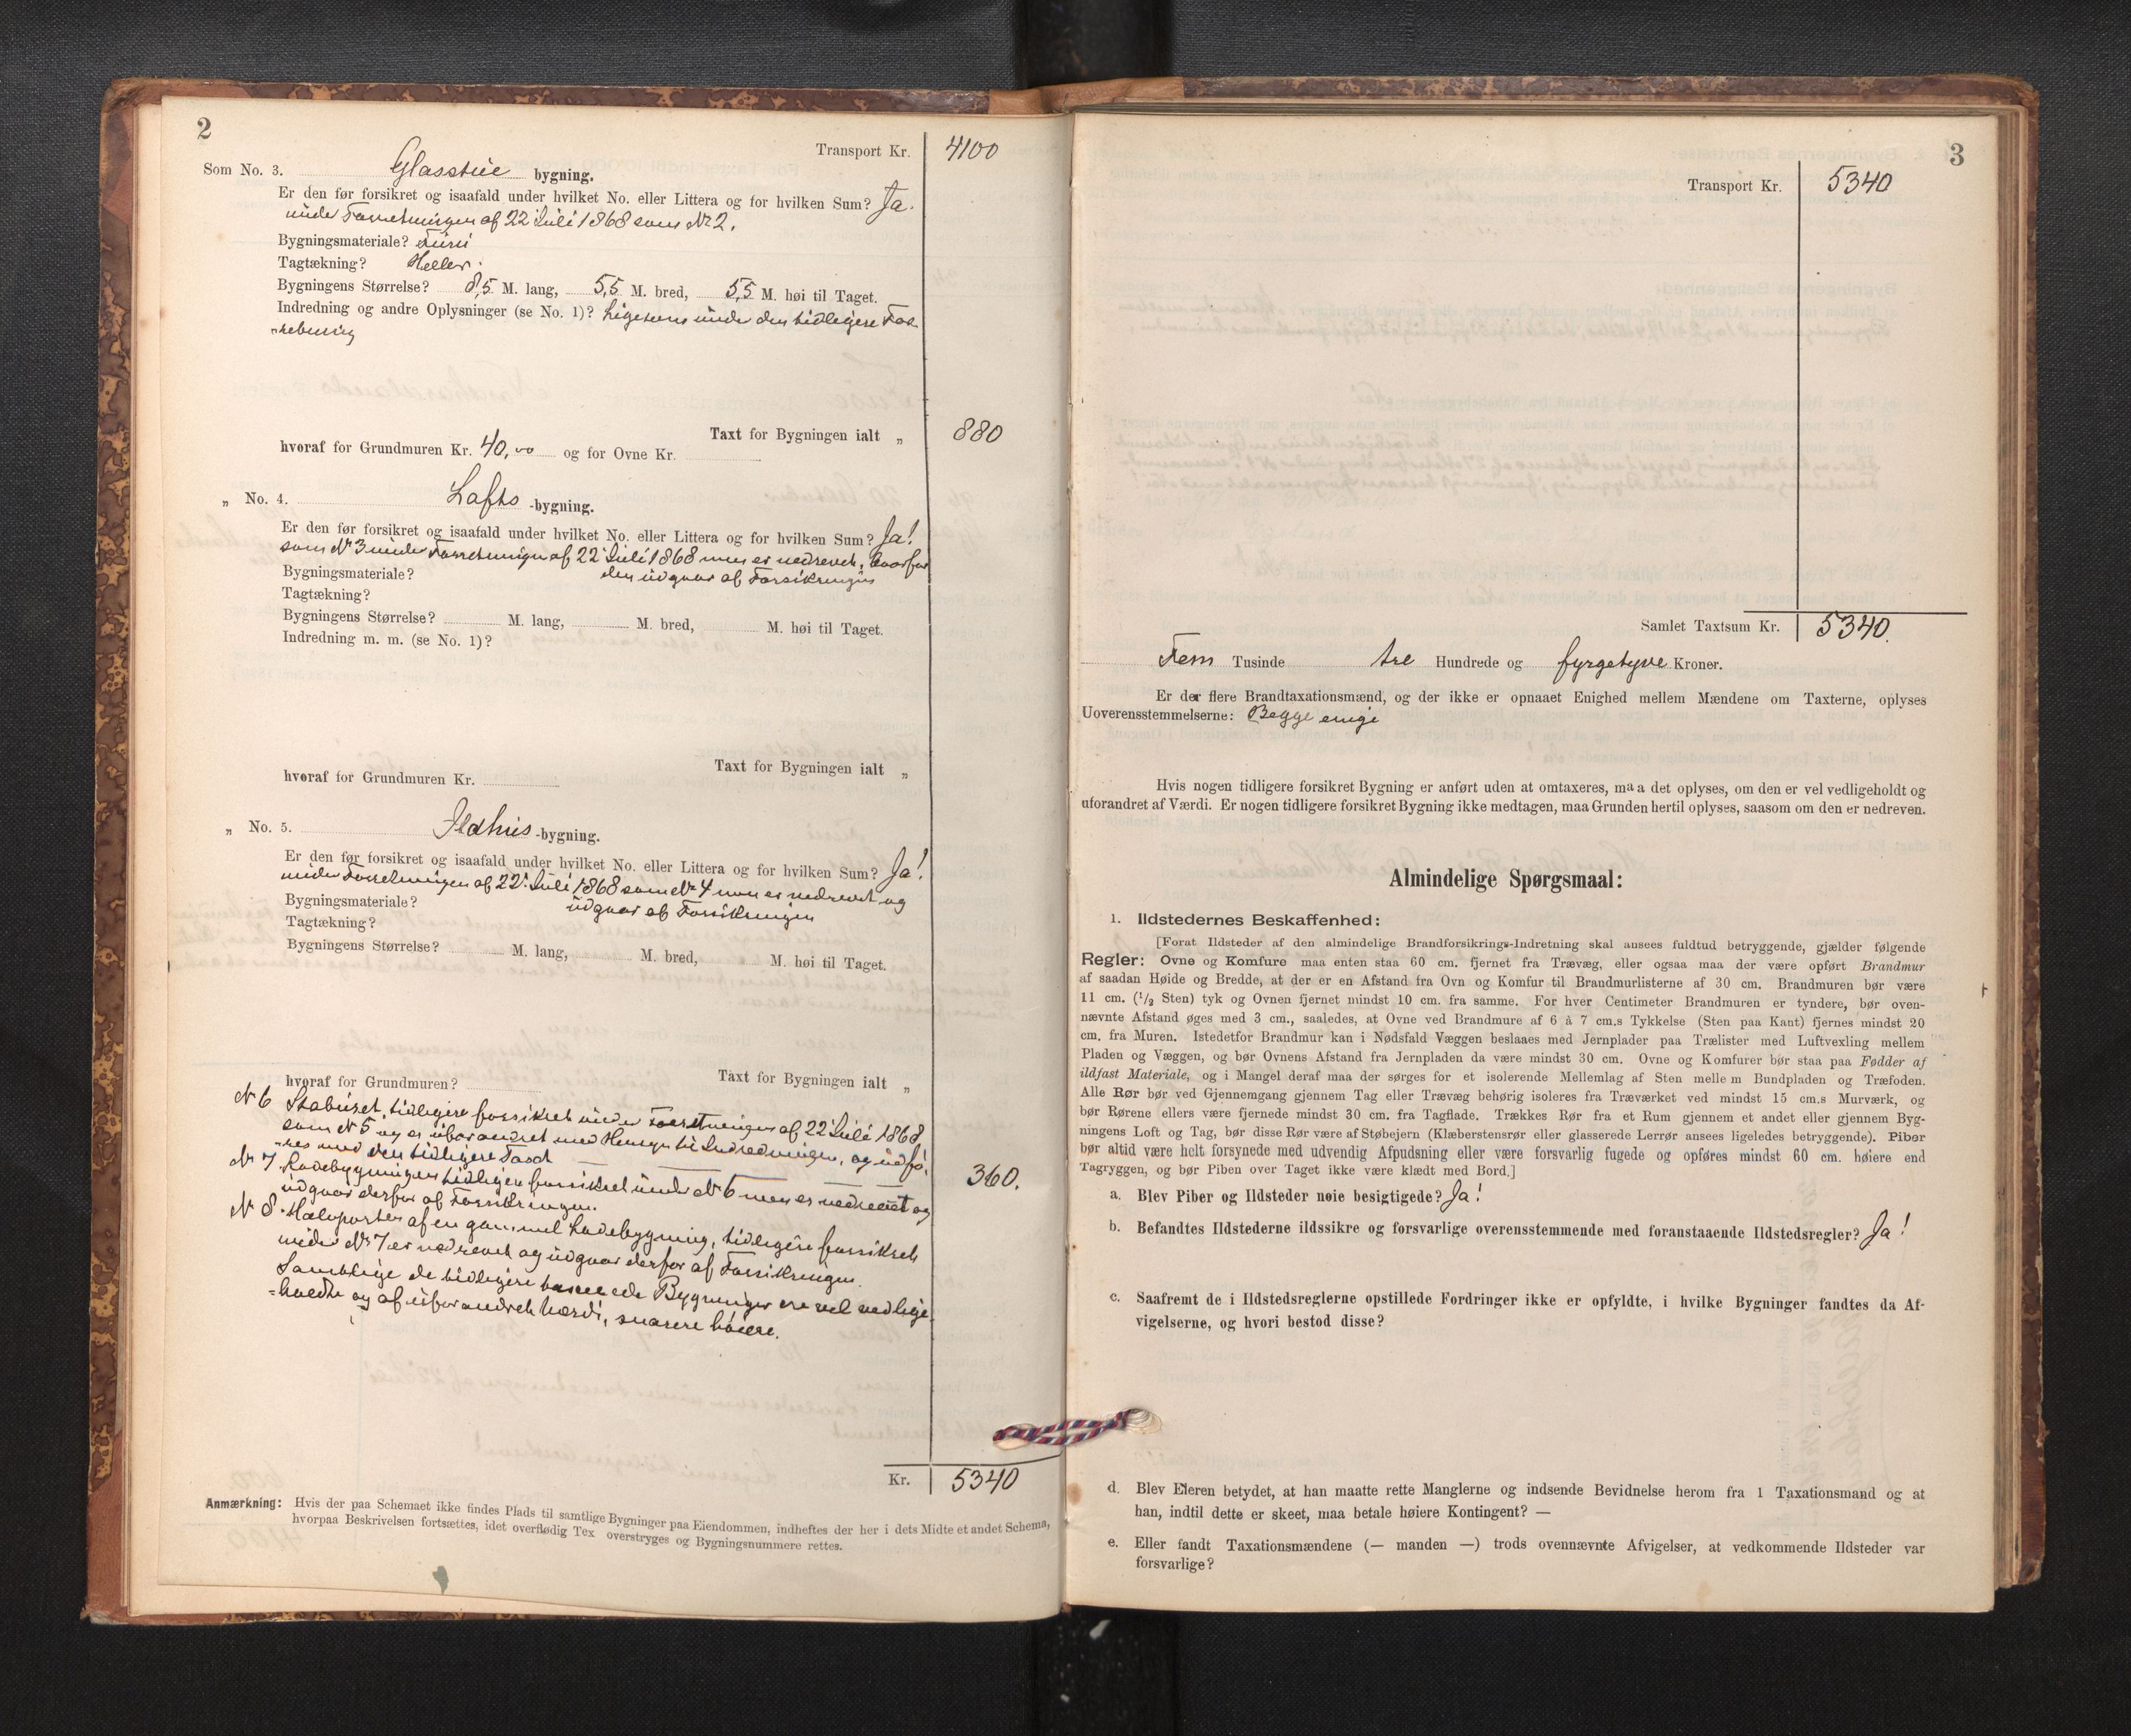 2
Transport Kr. 4100
Som No. 3. Glasstue bygning.
Er den før forsikret og isaafald under hvilket No. eller Littera og for hvilken Sum? Ja.
under Forretningen af 22 Juli 1868 som Nr 2.
Bygningsmateriale? Furu
Tagtækning? Heller.
Bygningens Størrelse? 8,5 M. lang, 5,5 M. bred, 5,5 M. høi til Taget.
Indredning og andre Oplysninger (se No. 1)? Ligesom under den tidligere For-
Taxt for Bygningen ialt „ 880
hvoraf for Grundmuren Kr. 40, og for Ovne Kr.
„ No. 4. Lofts -bygning.
Er den før forsikret og isaafald under hvilket No. eller Littera og for hvilken Sum? Ja!
som Nr 3 under Forretningen af 22 Juli 1868 men er nedrevet, hvorfor
Bygningsmateriale? den udgaar af Forsikringen
Tagtækning?
Bygningens Størrelse? M. lang, M. bred, M. høi til Taget.
Indredning m. m. (se No. 1)?
Taxt for Bygningen ialt „
hvoraf for Grundmuren Kr.
„ No. 5. Ildhus -bygning.
Er den før forsikret og isaafald under hvilket No. eller Littera og for hvilken Sum? Ja!
under Forretningen af 22 Juli 1868 som Nr 4 men er nedrevet og
Bygningsmateriale? udgaar af Forsikringen
Tagtækning?
Bygningens Størrelse? M. lang, M. bred, M. høi til Taget.
Taxt for Bygningen ialt „
hvoraf for Grundmuren?
N 6 Stabuset, tidligere forsikret under Forretningen af 22 Juli 1868,
som N 5 og er uforandret med Hensyn til Indredningen, og udfø-
res med den tidligere Taxt 360.
N 7 Ladebygningen tidligere forsikret under N 6 men er nedrevet og
udgaar derfor af Forsikringen.
N 8. Halvparten af en gammel Ladebygning, tidligere forsikret
under Nr 7 er nedrevet og udgaar derfor af Forsikringen.
Samtlige de tidligere Bygninger ere vel vedlige-
holdte og af uforandret Værdi, snarere høiere.
Kr. 5340
Anmærkning: Hvis der paa Schemaet ikke findes Plads til samtlige Bygninger paa Eiendommen, indheftes der her i dets Midte et andet Schema,
hvorpaa Beskrivelsen fortsættes, idet overflødig Tex overstryges og Bygningsnummere rettes.
3
Transport Kr. 5340
Samlet Taxtsum Kr. 5340.
Fem Tusinde tre Hundrede og fyrgetyve Kroner.
Er der flere Brandtaxationsmænd, og der ikke er opnaaet Enighed mellem Mændene om Taxterne, oplyses
Uoverensstemmelserne: Begge enige
Hvis nogen tidligere forsikret Bygning er anført uden at omtaxeres, maa det oplyses, om den er vel vedligeholdt og
uforandret af Værdi. Er nogen tidligere forsikret Bygning ikke medtagen, maa Grunden hertil oplyses, saasom om den er nedreven.
Almindelige Spørgsmaal:
1. Ildstedernes Beskaffenhed:
[Forat Ildsteder af den almindelige Brandforsikrings-Indretning skal ansees fuldtud betryggende, gjælder følgende
Regler: Ovne og Komfure maa enten staa 60 cm. fjernet fra Trævæg, eller ogsaa maa der være opført Brandmur
af saadan Høide og Bredde, at der er en Afstand fra Ovn og Komfur til Brandmurlisterne af 30 cm. Brandmuren bør være
11 cm. (1/2 Sten) tyk og Ovnen fjernet mindst 10 cm. fra samme. For hver Centimeter Brandmuren er tyndere, bør oven-
nævnte Afstand øges med 3 cm., saaledes, at Ovne ved Brandmure af 6 à 7 cm.s Tykkelse (Sten paa Kant) fjernes mindst 20
cm. fra Muren. Istedetfor Brandmur kan i Nødsfald Væggen beslaaes med Jernplader paa Trælister med Luftvexling mellem
Pladen og Væggen, og bør Ovnens Afstand fra Jernpladen da være mindst 30 cm. Ovne og Komfurer bør staa paa Fødder af
ildfast Materiale, og i Mangel deraf maa der sørges for et isolerende Mellemlag af Sten mellem Bundpladen og Træfoden.
Alle Rør bør ved Gjennemgang gjennem Tag eller Trævæg behørig isoleres fra Træværket ved mindst 15 cm.s Murværk, og
bør Rørene ellers være fjernede mindst 30 cm. fra Tagflade. Trækkes Rør fra et Rum gjennem et andet eller gjennem Byg-
ningens Loft og Tag, bør disse Rør være af Støbejern (Klæberstensrør eller glasserede Lerrør ansees ligeledes betryggende). Piber
bør altid være helt forsynede med udvendig Afpudsning eller være forsvarlig fugede og opføres mindst 60 cm. høiere end
Tagryggen, og bør Piben over Taget ikke være klædt med Bord.]
a. Blev Piber og Ildsteder nøie besigtigede? Ja!
b. Befandtes Ildstederne ildssikre og forsvarlige overensstemmende med foranstaaende Ildstedsregler? Ja!
c. Saafremt de i Ildstedsreglerne opstillede Fordringer ikke er opfyldte, i hvilke Bygninger fandtes da Af-
vigelserne, og hvori bestod disse?
d. Blev Eieren betydet, at han maatte rette Manglerne og indsende Bevidnelse herom fra 1 Taxationsmand og at
han, indtil dette er skeet, maa betale høiere Kontingent? —
e. Eller fandt Taxationsmændene (— manden —) trods ovennævnte Afvigelser, at vedkommende Ildsteder var
forsvarlige?